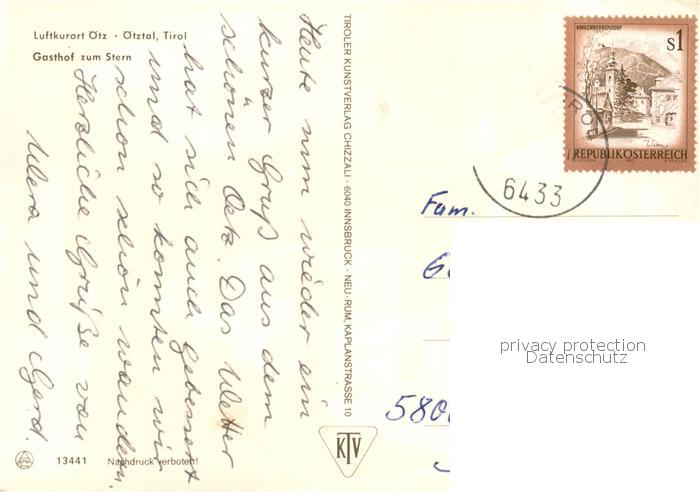 Luftkurort Ötz · Ötztal, Tirol
Gasthof zum Stern
Heute nun wieder ein
kurzer Gruß aus dem
schönen Oetz. Das Wetter
hat sich auch gebessert
und so konnten wir
schon schön wandern.
Herzliche Grüße von
Wera und Gerd.
13441 Nachdruck verboten!
TIROLER KUNSTVERLAG CHIZZALI · 6040 INNSBRUCK · NEU-RUM, KAPLANSTRASSE 10
KTV
KAHLENBERGERDORF
S1
Wien
REPUBLIK ÖSTERREICH
6433
Fam.
580
privacy protection
Datenschutz